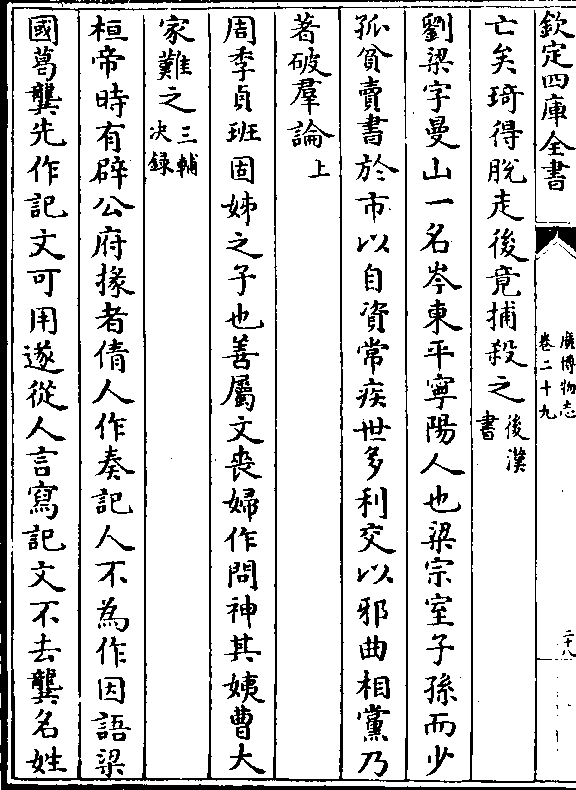 欽定四庫全書
廣博物志
卷二十九
二十八
亡矣琦得脫走後竟捕殺之後漢
書
劉梁字曼山一名岑東平寧陽人也梁宗室子孫而少
孤貧賣書於市以自資常疾世多利交以邪曲相黨乃
著破羣論上
周季貞班固姊之子也善屬文喪婦作問神其姨曹大
家難之三輔
決錄
桓帝時有辟公府掾者倩人作奏記人不為作因語梁
國葛龔先作記文可用遂從人言寫記文不去龔名姓